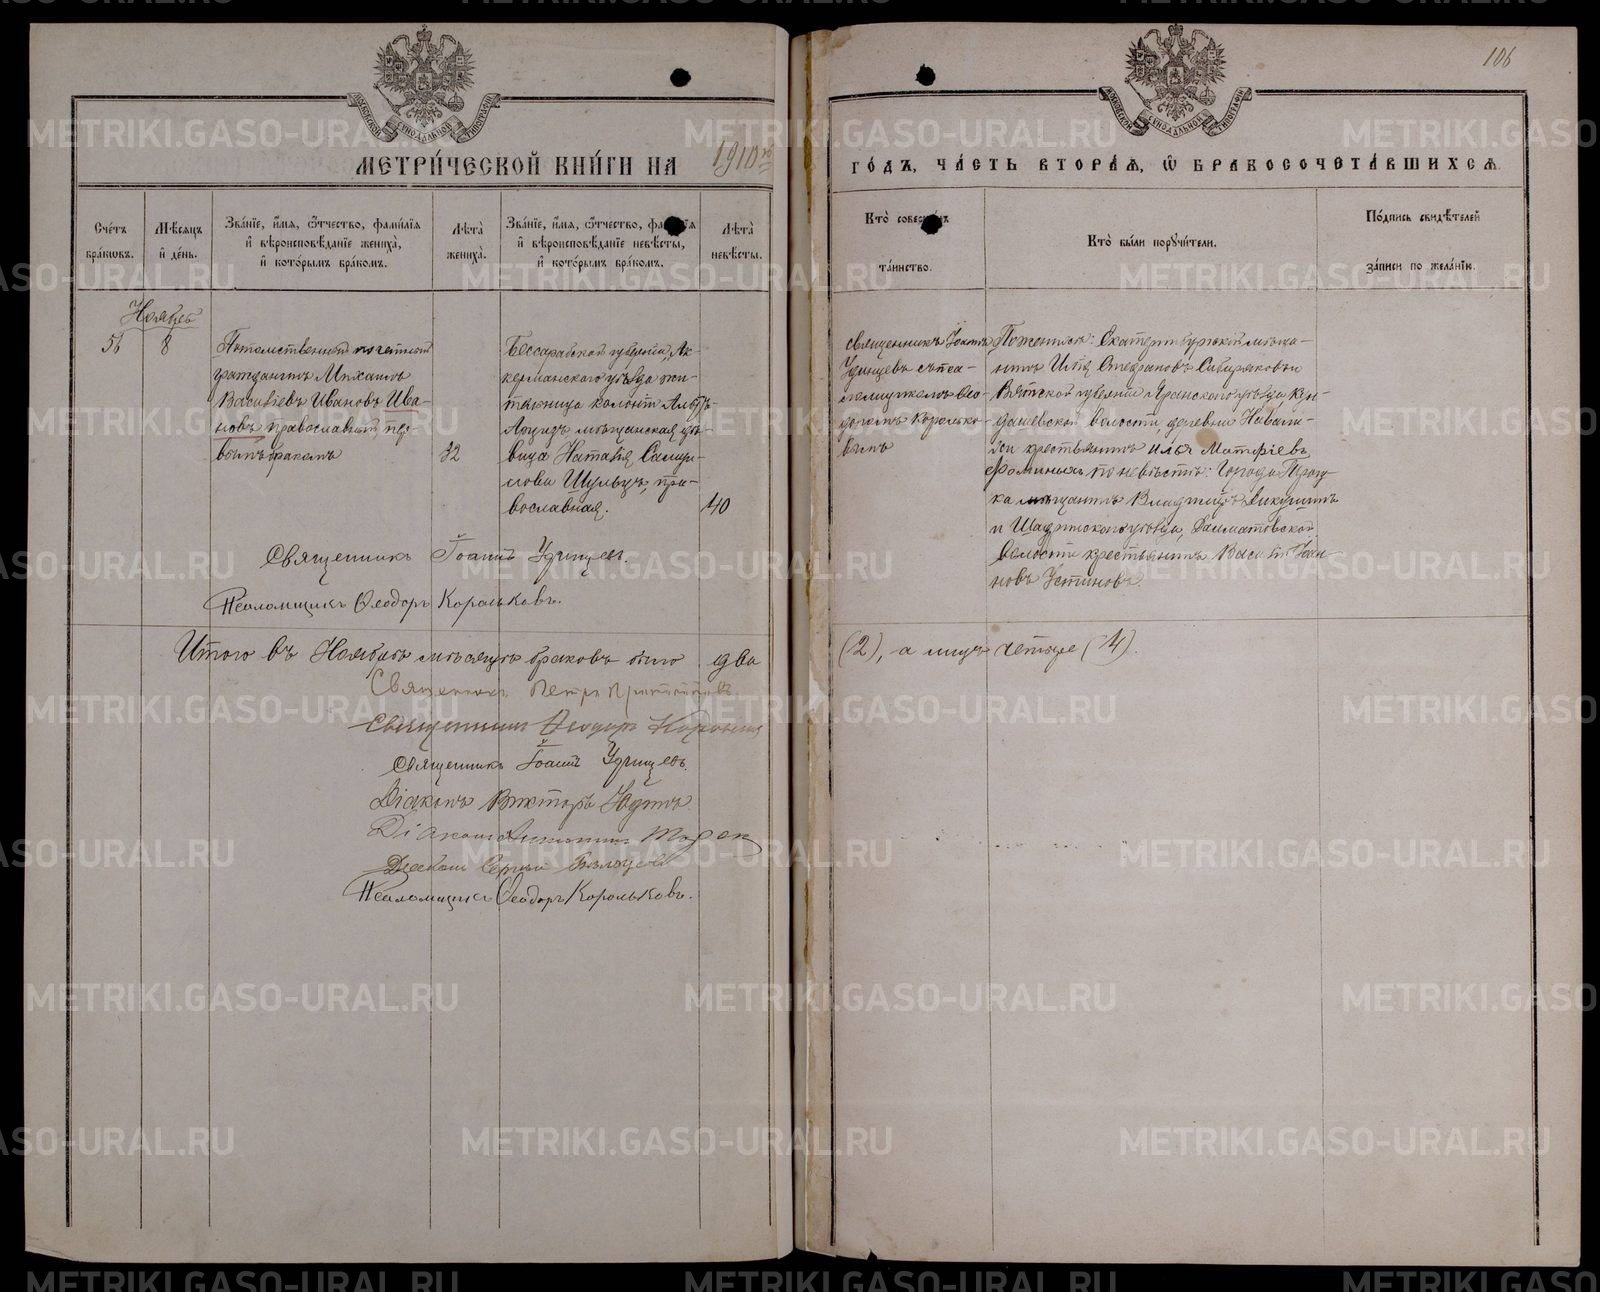 106
МОСКОВСКОЙ СѴНОДАЛЬНОЙ ТИПОГРАФІИ
МОСКОВСКОЙ СѴНОДАЛЬНОЙ ТИПОГРАФІИ
МЕТРИ́ЧЕСКОЙ КНИ́ГИ НА 1910й
ГО́ДЪ, ЧА́СТЬ ВТОРА́Ѧ, Ѡ҆ БРАКОСОЧЕТА́ВШИХСѦ.
Сче́тъ бра́кѡвъ.
Мѣ́сѧцъ и҆ де́нь.
Зва́нїе, и҆́мѧ, ѻ҆́тчество, фами́лїѧ и҆ вѣроисповѣ́данїе жениха̀, и҆ кото́рымъ бра́комъ.
Лѣта̀ жениха̀.
Зва́нїе, и҆́мѧ, ѻ҆́тчество, фами́лїѧ и҆ вѣроисповѣ́данїе невѣ́сты, и҆ кото́рымъ бра́комъ.
Лѣта̀ невѣ́сты.
Кто̀ соверша́лъ та́инство.
Кто̀ бы́ли порꙋчи́тели.
По́дпись свидѣ́телей за́писи по жела́нїю.
Ноябрь
56
8
Потомственный почетный
гражданинъ Михаилъ
Васильевъ Ивановъ Ива-
новъ православный пер-
вымъ бракомъ
32
Бессарабской губерніи, Ак-
керманскаго уѣзда жи-
тельница колоніи Альтъ-
Арцизъ мѣщанская дѣ-
вица Наталія Самуи-
лова Шульцъ, пра-
вославная.
40
священникъ Іоаннъ
Удинцевъ съ пса-
ломщикомъ Ѳео-
доромъ Королько-
вымъ
По женихѣ: Екатеринбургскій мѣща-
нинъ Илья Стефановъ Сибиряковъ и
Вятской губерніи Яранскаго уѣзда
волости, деревни
крестьянинъ Илья Матфіевъ
Фоминыхъ по невѣстѣ: города Троиц-
ка мѣщанинъ Владиміръ
и Шадринскаго уѣзда, Далматовской
волости крестьянинъ Василій Іоан-
новъ Устиновъ
Священникъ Іоаннъ Удинцевъ.
Псаломщикъ Ѳеодоръ Корольковъ.
Итого въ Ноябрѣ мѣсяцѣ браковъ было два
(2), а лицъ четыре (4).
Священникъ Петръ
Священникъ Ѳеодоръ Коровинъ
Священникъ Іоаннъ Удинцевъ.
Діаконъ Викторъ Юдинъ
Діаконъ
Діаконъ Сергій Бѣлоусовъ
Псаломщикъ Ѳеодоръ Корольковъ.
METRIKI.GASO-URAL.RU